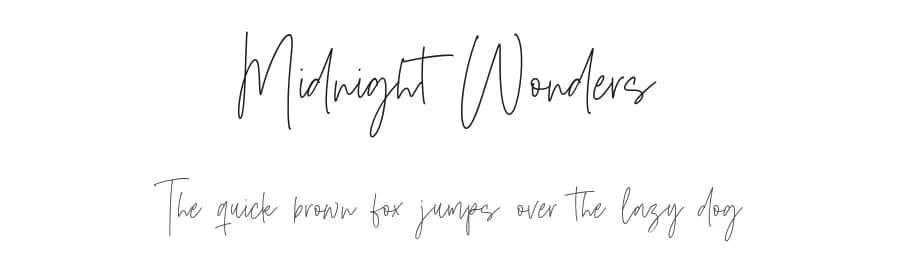 Midnight Wonders
The quick brown fox jumps over the lazy dog